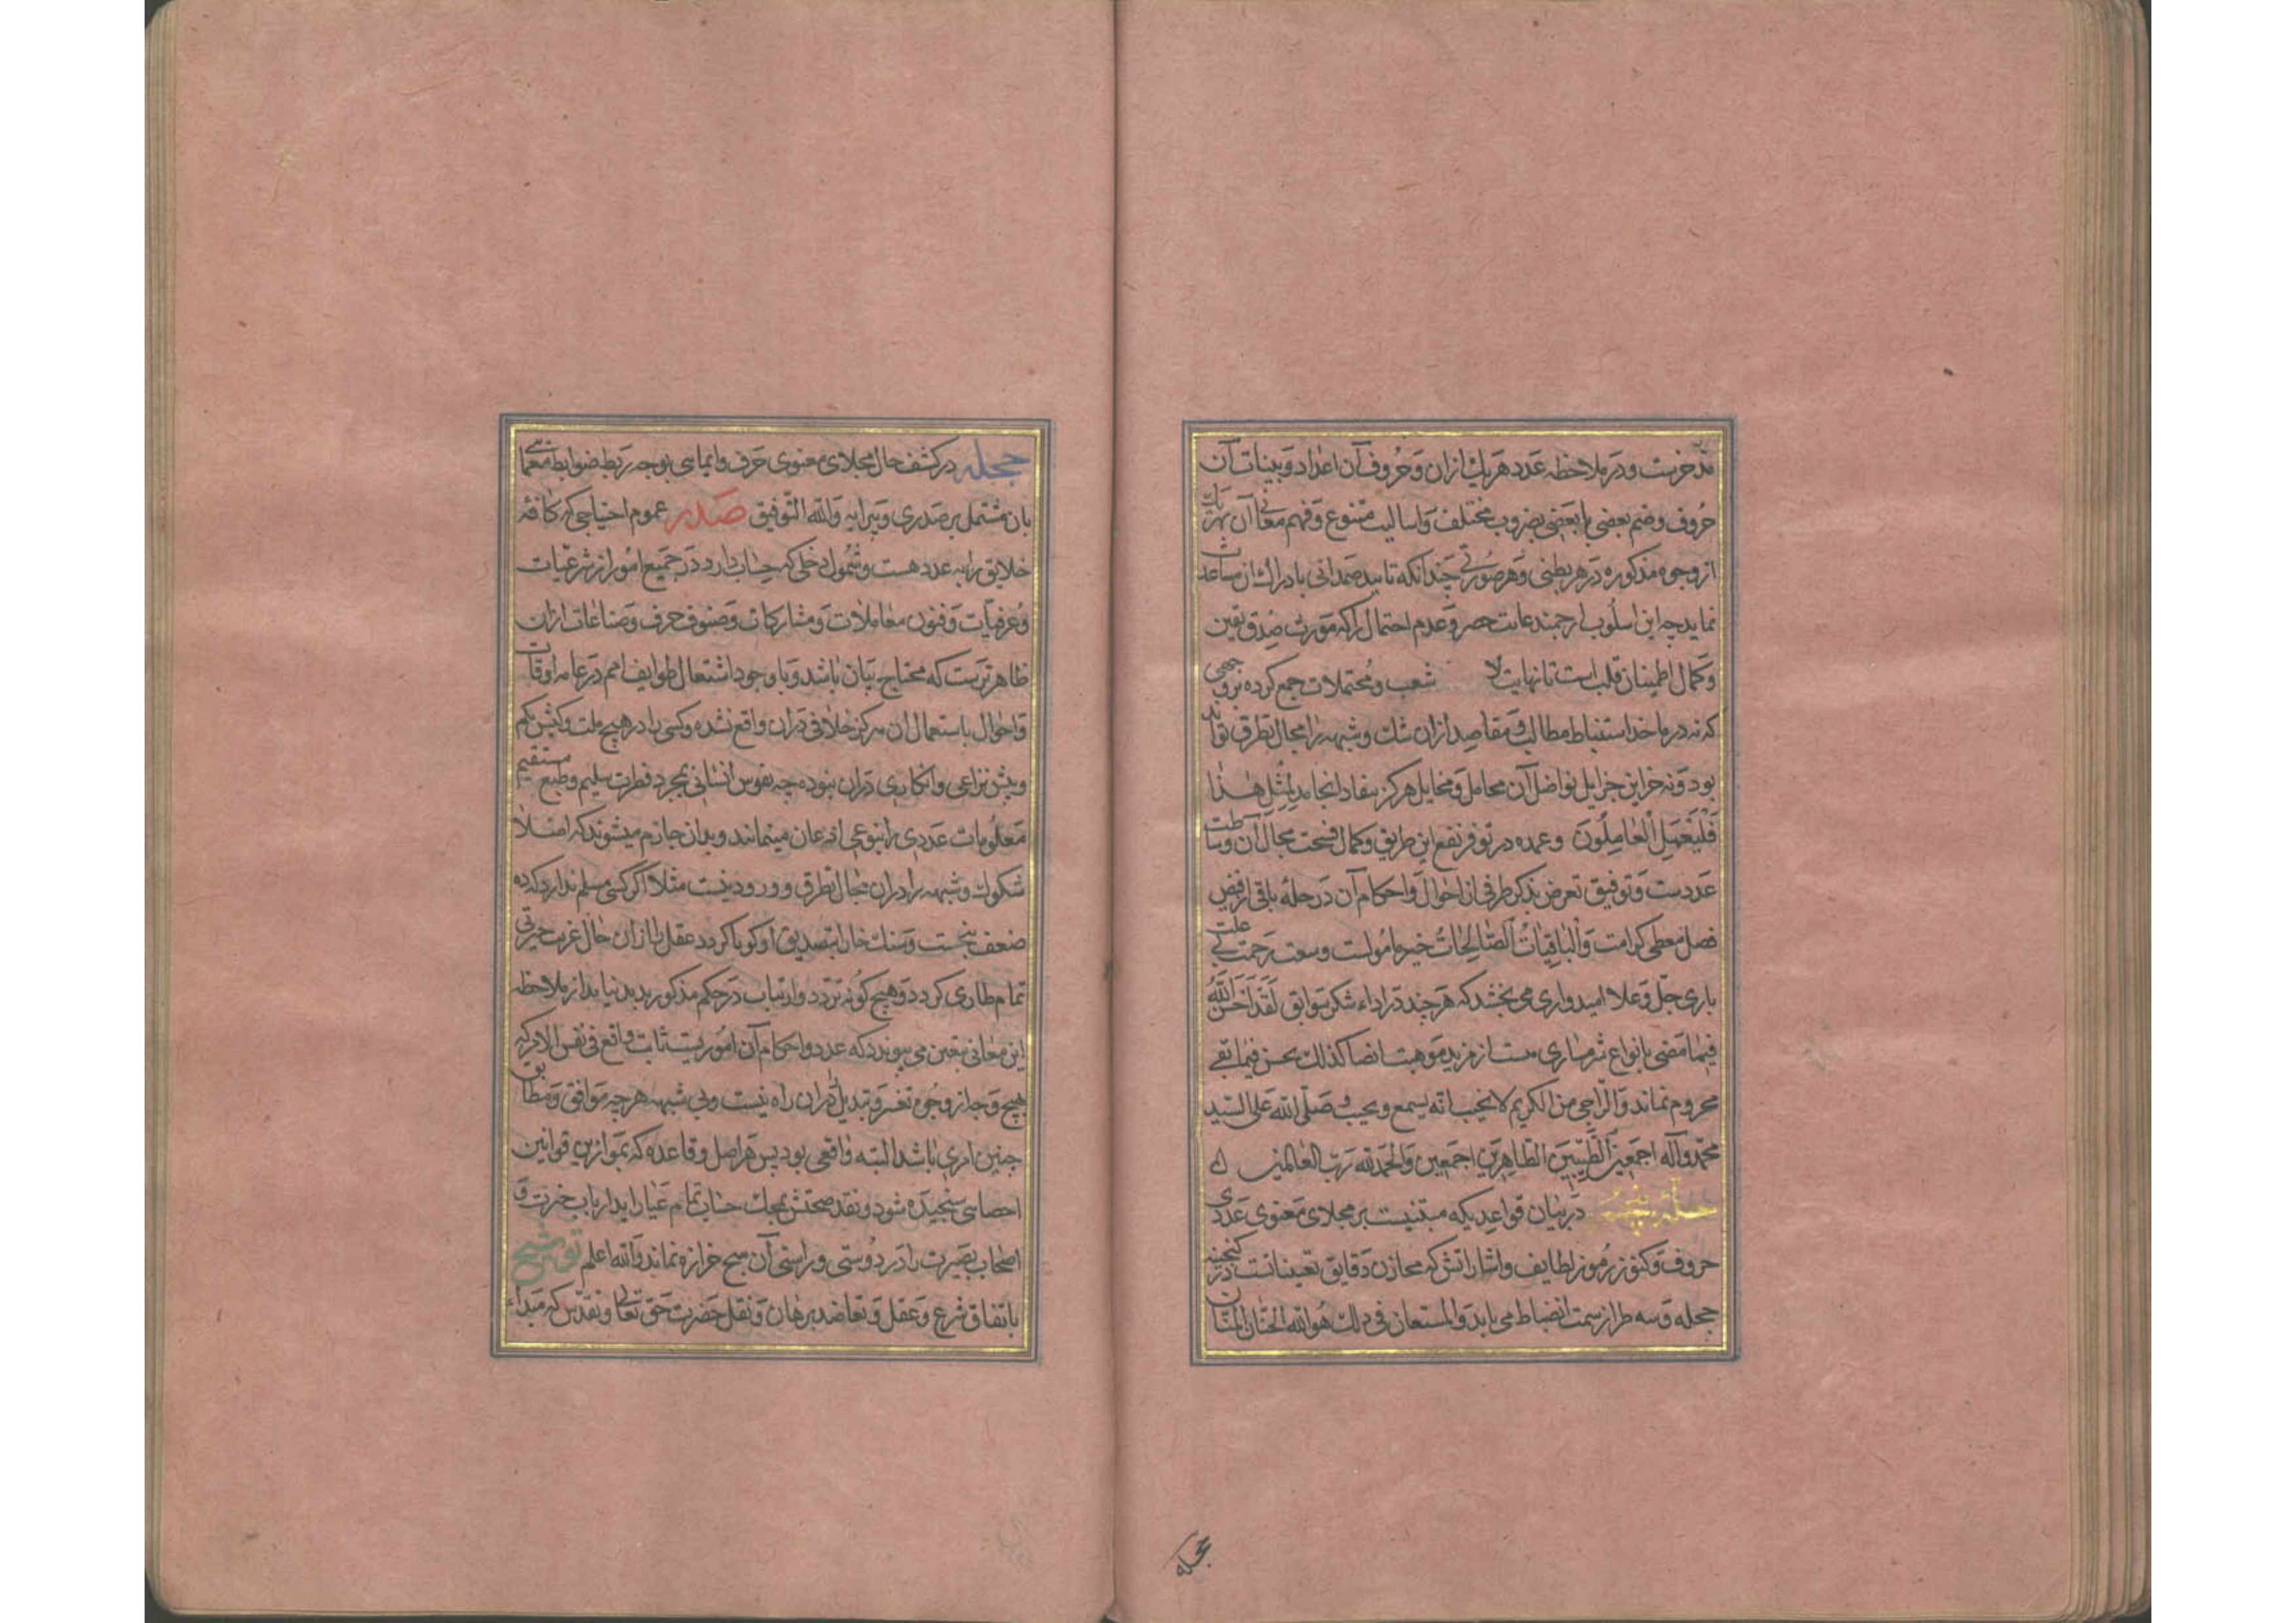 مدخرست و در ملاحظه عدد هر یك ازان و حروف آن اعداد و بینات آن
حروف و ضم بعضی با بعضی بضروب مختلف و اسالیب متنوع و فهم معانی آن بهر یك
از وجوه مذکوره در هر بطنی و هر صورتی چندانکه تایید صمدانی بادراك آن مساعدت
نماید چه این اسلوب ارجمند غایت حصر و عدم احتمال را که مورث صدق یقین
و کمال اطمینان قلب است تا نهایت لا شعب و محتملات جمع کرده بروجهی
که نه در ماخذ استنباط مطالب و مقاصد ازان شك و شبهه را مجال تطرق تواند
بود و نه خزاین جزایل نواضل آن محامل و مخایل هرکز بنفاد انجامد لمثل هذا
فلیعمل العاملون و عمده در توفر نفع این طریق و کمال فسحت مجال آن وساطت
عددست و توفیق تعرض بذکر طرفی از احوال و احکام آن در حلهٔ باقی از فیض
فضل معطی کرامت والباقیات الصالحات خیر مامولست و وسعت رحمت بی علت
باری جل و علا امیدواری می بخشد که هر چند در اداء شکر سوابق لقد احسن الله
فیما مضی بانواع شرمساری ست از مزید موهبت انصا کذلك یحسن فیما بقی
محروم نماند والراجی من الکریم لا یخیب انه یسمع و یجیب و صلی الله علی السید
محمد و آله اجمعین الطیبین الطاهرین اجمعین والحمد لله رب العالمین
حلهٔ پنجم در بیان قواعدیکه مبتنیست بر مجلای معنوی عددی
حروف و کنوز رموز لطایف و اشاراتش که مخازن دقایق تعینانست در کنجینه
حجله و سه طراز سمت انضباط می یابد والمستعان فی ذلك هو الله الحنان المنان
حجله در کشف حال مجلای معنوی حرف و ایمایی بوجه ربط ضوابط معمایی
بان مشتمل بر صدری و پیرایه والله التوفیق صدر عموم احتیاجی که کافه
خلایق را به عدد هست و شمول دخلی که حساب دارد در جمیع امور از شرعیات
و عرفیات و فنون معاملات و مشارکات و صنوف حرف و صناعات ازان
ظاهرترست که محتاج بیان باشد و با وجود اشتغال طوایف امم در عامه اوقات
و احوال باستعمال ان هرکز خلافی دران واقع نشده و کسی را در هیچ ملت و کیش بکم
و بیش نزاعی و انکاری دران نبوده چه نفوس انسانی بمجرد فطرت سلیم و طبع مستقیم
معلومات عددی را بنوعی اذعان مینمایند و بدان جازم میشوند که اصلا
شکوك و شبهه را دران مجال تطرق و ورود نیست مثلا اکر کسی مسلم ندارد که ده
ضعف پنجست و سنك خارا بتصدیق او کویا کردد عقل را ازان حال غریب حیرتی
تمام طاری کردد و هیچ کونه تردد و ارتیاب در حکم مذکور پدید نیاید از ملاحظه
این معانی بیقین می پیوندد که عدد و احکام آن اموریست ثابت واقع فی نفس الامر که
هیچ وجه از وجوه تغیر و تبدیل را دران راه نیست و بی شبهه هر چه موافق و مطابق
چنین امری باشد البته واقعی بود پس هر اصل و قاعده که بموازین قوانین
احصایی سنجیده شود و نقد صحتش بمحك حساب تمام عیار اید ارباب خبرت و
اصحاب بصیرت را در درستی و راستی آن هیچ خرازه نماند والله اعلم توشیح
باتفاق شرع و عقل و تعاضد برهان و نقل حضرت حق تعالی و تقدس که مبداء